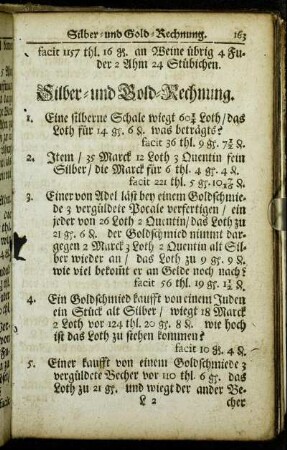 Silber-und Gold-Rechnung. 163
facit 1157 thl. 16 gs. an Weine übrig 4 Fu-
der 2 Ahm 24 Stübichen.
Silber-und Gold-Rechnung.
1. Eine silberne Schale wiegt 60¾ Loth/das
Loth für 14 gs. 6 ₰. was beträgts?
facit 36 thl. 9 gs. 7½ ₰.
2. Item/35 Marck 12 Loth 3 Quentin fein
Silber/die Marck für 6 thl. 4 gs. 4 ₰.
facit 221 thl. 5 gs.
3. Einer von Adel läst bey einem Goldschmie-
de 3 vergüldete Pocale verfertigen/ein
jeder von 26 Loth 2 Quentin/das Loth zu
21 gs. 6 ₰. der Goldschmid nimmt dar-
gegen 2 Marck 3 Loth 2 Quentin alt Sil-
ber wieder an/das Loth zu 9 gs. 9 ₰.
wie viel bekomt er an Gelde noch nach?
facit 56 thl. 19 gs. 1½ ₰.
4. Ein Goldschmid kaufft von einem Juden
ein Stück alt Silber/wiegt 18 Marck
2 Loth vor 124 thl. 20 gs. 8 ₰. wie hoch
ist das Loth zu stehen kommen?
facit 10 gs. 4 ₰.
5. Einer kaufft von einem Goldschmiede 3
vergüldete Becher vor 110 thl. 6 gs. das
Loth zu 21 gs. und wiegt der ander Be-
L 2 cher